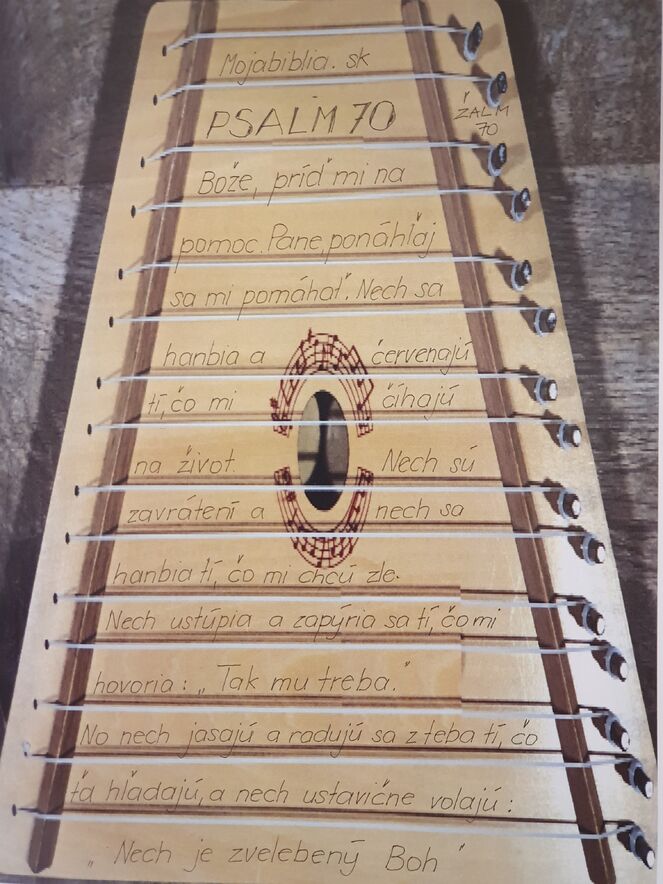 Mojabiblia.sk
PSALM 70
ŽALM
70
Bože, príď mi na
pomoc. Pane, ponáhľaj
sa mi pomáhať. Nech sa
hanbia a červenajú
tí, čo mi číhajú
na život. Nech sú
zavrátení a nech sa
hanbia tí, čo mi chcú zle.
Nech ustúpia a zapýria sa tí, čo mi
hovoria: „Tak mu treba."
No nech jasajú a radujú sa z teba tí, čo
ťa hľadajú, a nech ustavične volajú:
„Nech je zvelebený Boh"